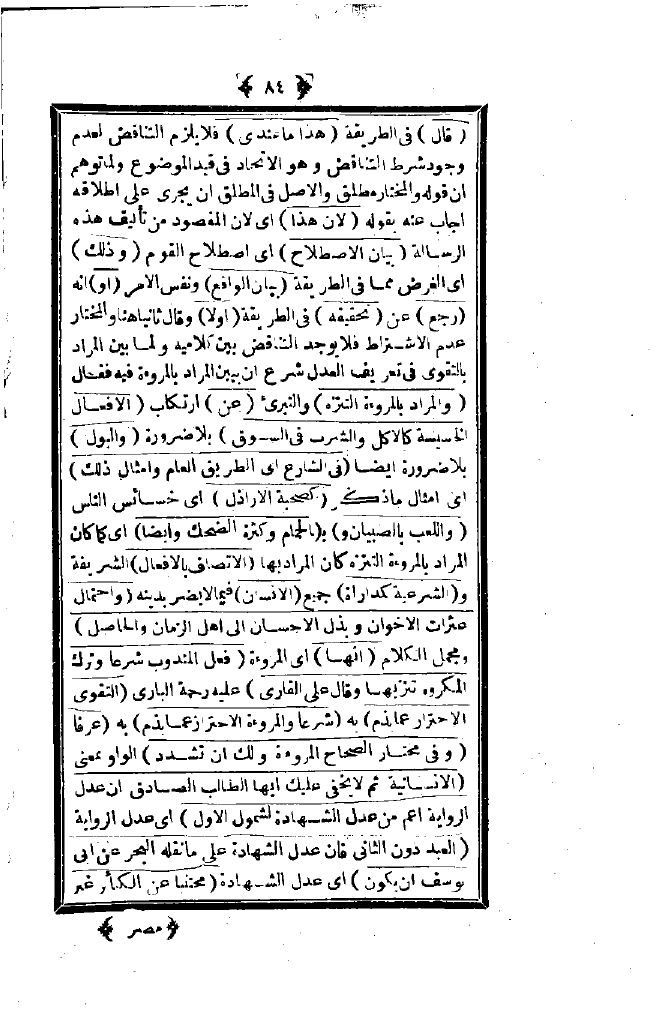 ﴿ ٨٤ ﴾
( قال ) فى الطريقة ( هذا ما عندى ) فلا يلزم التناقض لعدم
وجود شرط التناقض و هو الاتحاد فى قيد الموضوع ولما توهم
ان قوله والمختار مطلق والاصل فى المطلق ان يجرى على اطلاقه
اجاب عنه بقوله ( لان هذا ) اى لان المقصود من تأليف هذه
الرسالة ( بيان الاصطلاح ) اى اصطلاح القوم ( وذلك )
اى الغرض مما فى الطريقة ( بيان الواقع ) ونفس الامر ( او ) انه
( رجع ) عن ( تحقيقه ) فى الطريقة ( اولا ) وقال ثانيا هنا والمختار
عدم الاشتراط فلا يوجد التناقض بين كلاميه و لما بين المراد
بالتقوى فى تعريف العدل شرع ان يبين المراد بالمروءة فيه فقال
( والمراد بالمروءة التنزه ) والتبرئ ( عن ) ارتكاب ( الافعال
الخسيسة كالاكل والشرب فى السوق ) بلاضرورة ( والبول )
بلاضرورة ايضا ( فى الشارع اى الطريق العام وامثال ذلك )
اى امثال ماذكر ( كصحبة الاراذل ) اى خسائس الناس
( واللعب بالصبيان و ) ب( الحمام وكثرة الضحك وايضا ) اى كما كان
المراد بالمروءة التنزه كان المراد بها ( الاتصاف بالافعال ) الشريفة
و( الشرعية كداراة ) جميع ( الانسان ) فيما لا يضر بدينه ( واحتمال
عثرات الاخوان و بذل الاحسان الى اهل الزمان والحاصل )
ومجمل الكلام ( انها ) اى المروءة ( فعل المندوب شرعا وترك
المكروه تنزيها وقال على القارى ) عليه رحمة البارى ( التقوى
الاحتراز عمايذم ) به ( شرعا والمروءة الاحتراز عما يذم ) به ( عرفا
( و فى مختار الصحاح المروءة و لك ان تشدد ) الواو بمعنى
( الانسانية ثم لا يخفى عليك ايها الطالب الصادق ان عدل
الرواية اعم من عدل الشهادة لشمول الاول ) اى عدل الرواية
( العبد دون الثانى فان عدل الشهادة على ما نقله البحر عن ابى
يوسف ان يكون ) اى عدل الشهادة ( مجتنبا عن الكبائر غير
﴿ مصر ﴾